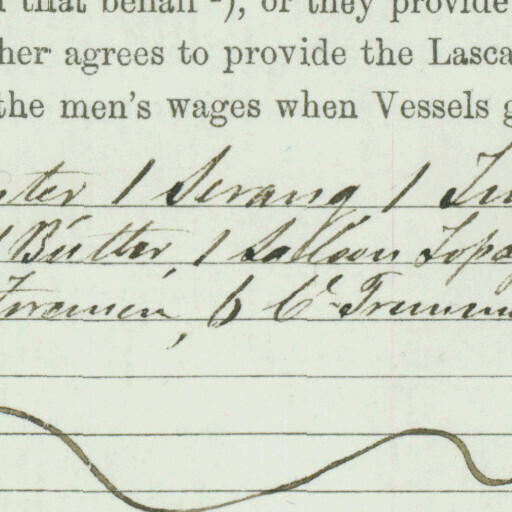 that behalf -), or they provide
her agrees to provide the Lasca
the men's wages when Vessels g
1 Serang 1
1 Butler, 1 Salloon Topa
Firemen, 6 C. Trimm